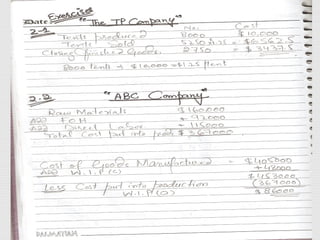 Exercise
Date
2-1 "The TP Company"
No. Cost
Tents produced 8000 $10,000
Tents sold 5250 $6562.5
Closing finished Goods 2750 $3437.5
8000 tents = $10,000 = $1.25 / tent
2.2 "ABC Company"
Raw Materials $160000
Add F.O.H 92000
Add Direct Labor 115000
Total Cost put into $367000
Cost of Goods Manufactured = $405000
Add W.I.P(c) +48000
$453000
Less Cost put into production (367000)
W.I.P(O) $86000